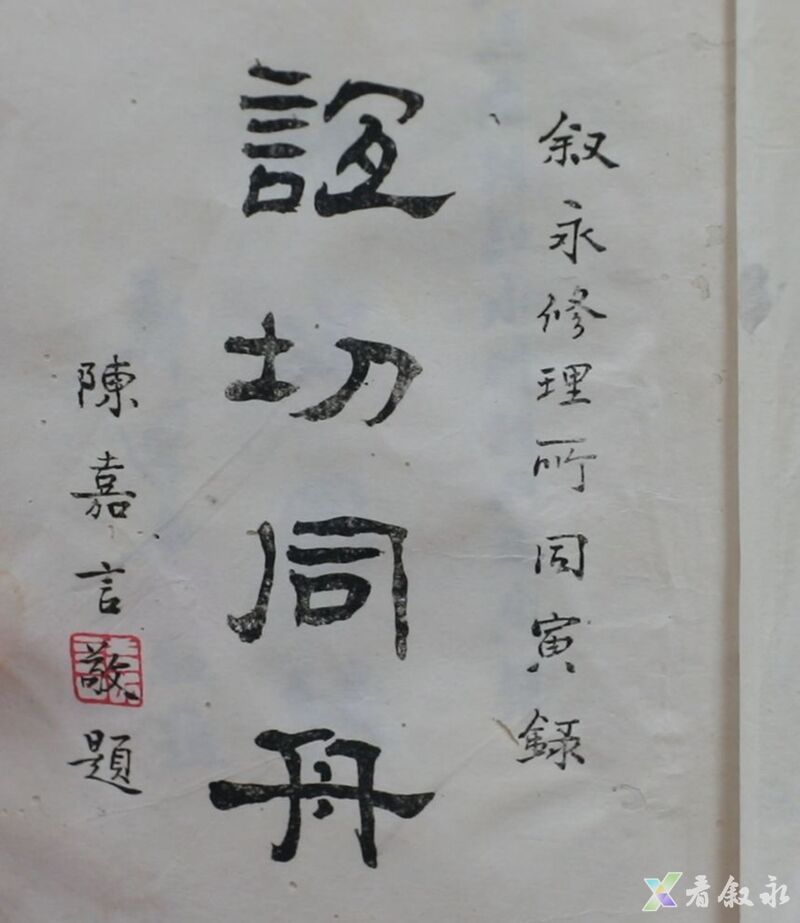 叙永修理所同寅録
誼切同舟
陳嘉言敬題
看叙永